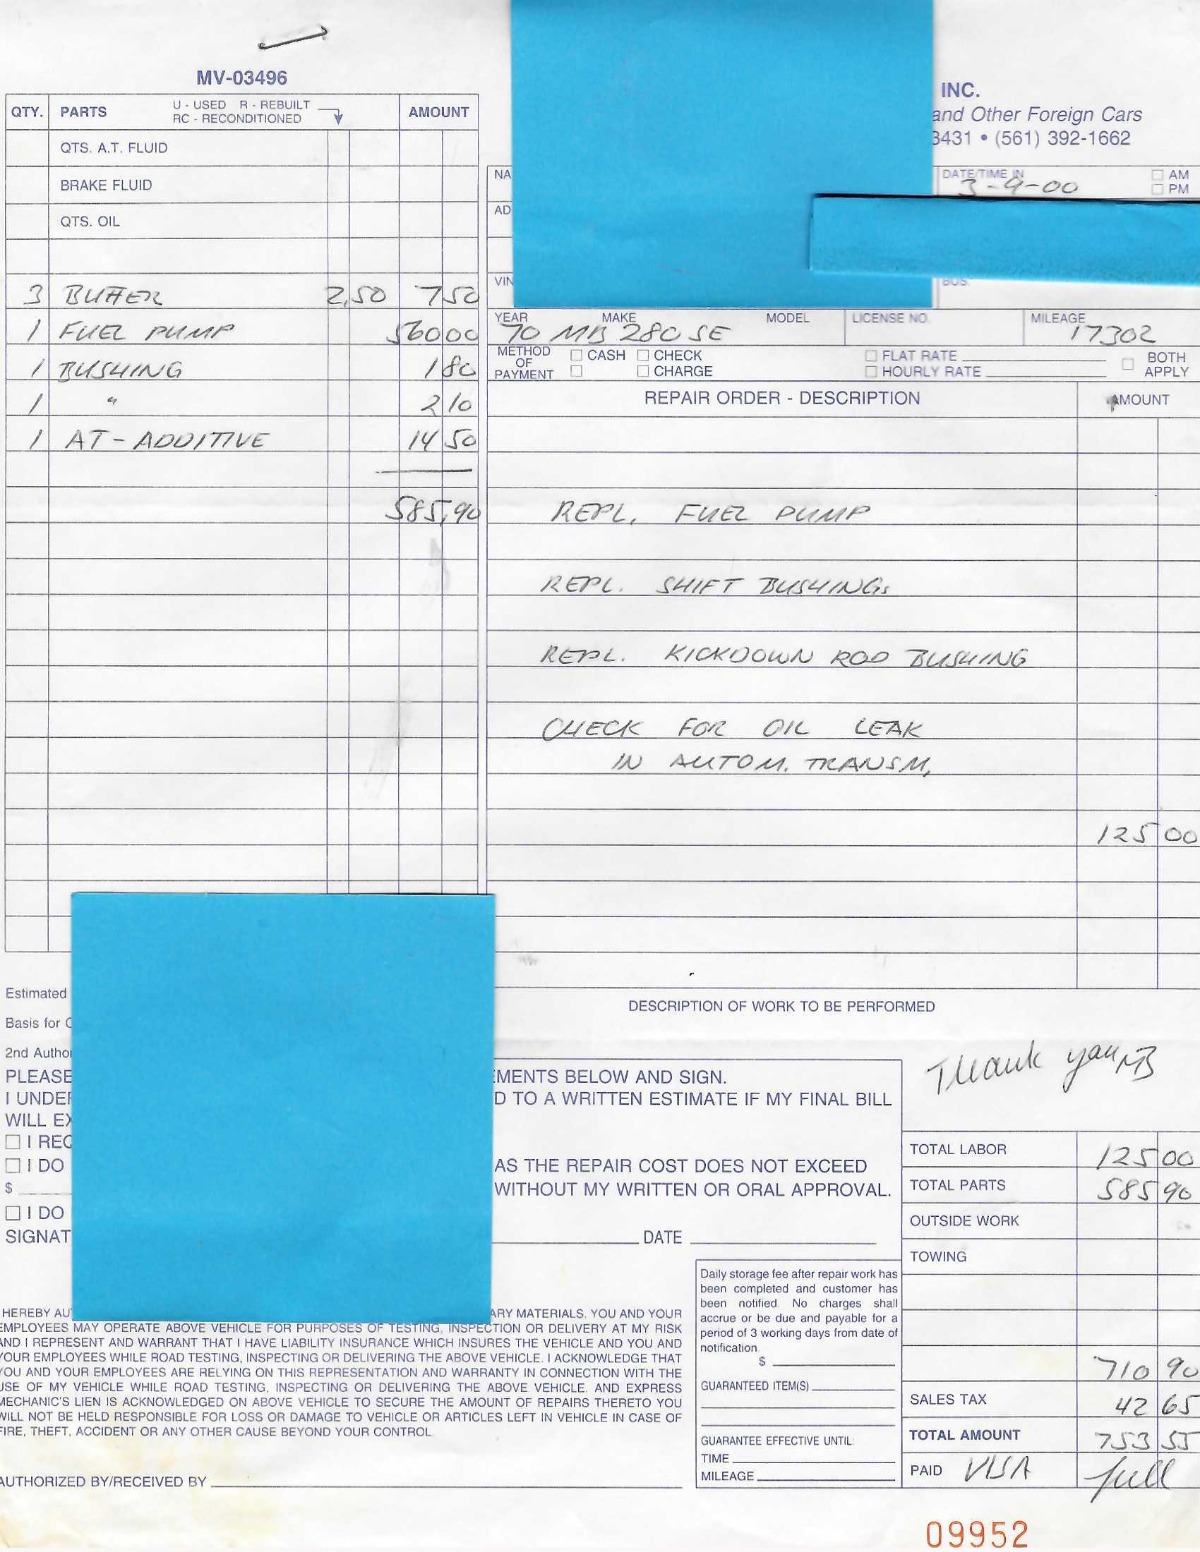 MV-03496
INC.
and Other Foreign Cars
3431 • (561) 392-1662
QTY. PARTS U - USED R - REBUILT RC - RECONDITIONED AMOUNT
QTS. A.T. FLUID
BRAKE FLUID
QTS. OIL
3 BUFFER 2,50 7 50
1 FUEL PUMP 560 00
1 BUSHING 1 80
1 " 2 10
1 AT-ADDITIVE 14 50
585,90
NA
DATE/TIME IN 3-9-00 AM PM
AD
VIN
BUS.
YEAR MAKE MODEL LICENSE NO. MILEAGE
70 MB 280SE 17302
METHOD OF PAYMENT CASH CHECK CHARGE FLAT RATE HOURLY RATE BOTH APPLY
REPAIR ORDER - DESCRIPTION AMOUNT
REPL. FUEL PUMP
REPL. SHIFT BUSHINGS
REPL. KICKDOWN ROD BUSHING
CHECK FOR OIL LEAK
IN AUTOM. TRANSM.
125 00
Estimated
Basis for
2nd Autho
DESCRIPTION OF WORK TO BE PERFORMED
PLEASE EMENTS BELOW AND SIGN.
I UNDER D TO A WRITTEN ESTIMATE IF MY FINAL BILL
WILL EX
I REQ
I DO AS THE REPAIR COST DOES NOT EXCEED
$ WITHOUT MY WRITTEN OR ORAL APPROVAL.
I DO
SIGNAT DATE
Thank you MB
HEREBY AU ARY MATERIALS. YOU AND YOUR
EMPLOYEES MAY OPERATE ABOVE VEHICLE FOR PURPOSES OF TESTING, INSPECTION OR DELIVERY AT MY RISK
AND I REPRESENT AND WARRANT THAT I HAVE LIABILITY INSURANCE WHICH INSURES THE VEHICLE AND YOU AND
YOUR EMPLOYEES WHILE ROAD TESTING, INSPECTING OR DELIVERING THE ABOVE VEHICLE. I ACKNOWLEDGE THAT
YOU AND YOUR EMPLOYEES ARE RELYING ON THIS REPRESENTATION AND WARRANTY IN CONNECTION WITH THE
USE OF MY VEHICLE WHILE ROAD TESTING, INSPECTING OR DELIVERING THE ABOVE VEHICLE. AND EXPRESS
MECHANIC'S LIEN IS ACKNOWLEDGED ON ABOVE VEHICLE TO SECURE THE AMOUNT OF REPAIRS THERETO YOU
WILL NOT BE HELD RESPONSIBLE FOR LOSS OR DAMAGE TO VEHICLE OR ARTICLES LEFT IN VEHICLE IN CASE OF
FIRE, THEFT, ACCIDENT OR ANY OTHER CAUSE BEYOND YOUR CONTROL.
AUTHORIZED BY/RECEIVED BY
Daily storage fee after repair work has
been completed and customer has
been notified. No charges shall
accrue or be due and payable for a
period of 3 working days from date of
notification.
$
GUARANTEED ITEM(S)
GUARANTEE EFFECTIVE UNTIL:
TIME
MILEAGE
TOTAL LABOR 125 00
TOTAL PARTS 585 90
OUTSIDE WORK
TOWING
710 90
SALES TAX 42 65
TOTAL AMOUNT 753 55
PAID VISA full
09952